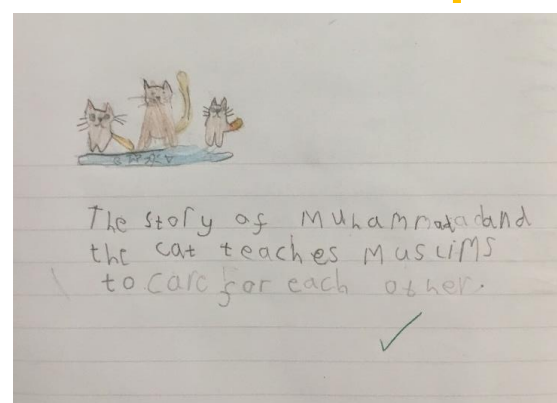 The story of Muhammad and
the cat teaches Muslims
to care for each other.